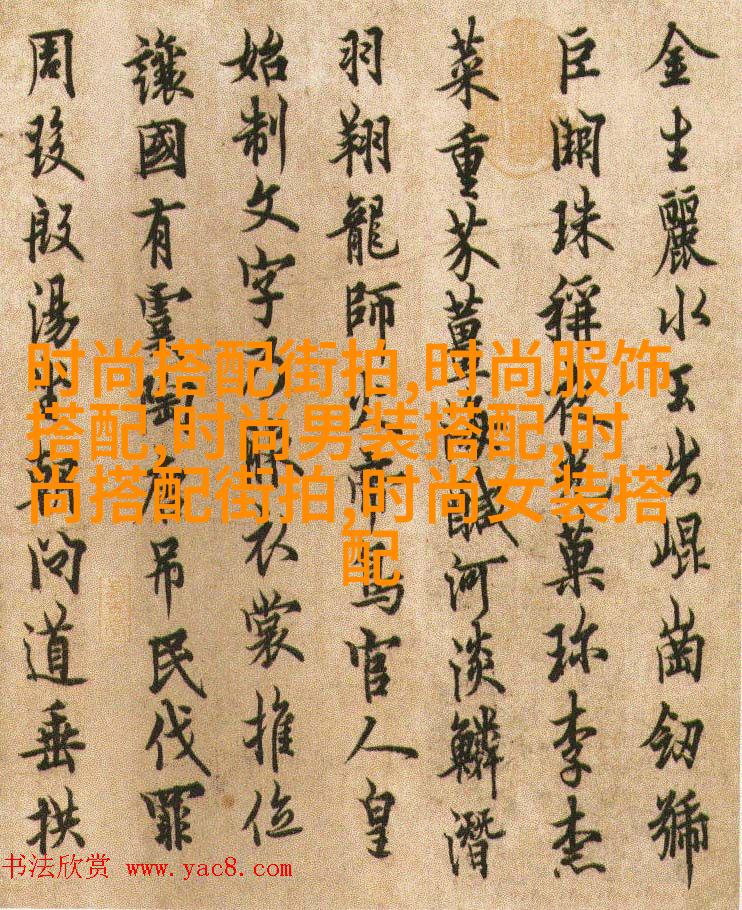 金生麗水玉出崐崗劒號
巨闕珠稱夜光菓珎李柰
菜重芥薑海鹹河淡鱗潛
羽翔龍師火帝鳥官人皇
始制文字乃服衣裳推位
讓國有虞陶唐吊民伐罪
周發殷湯坐朝問道垂拱
时尚搭配街拍,时尚服饰
搭配,时尚男装搭配,时
尚搭配街拍,时尚女装搭
配
书法欣赏 www.yac8.com